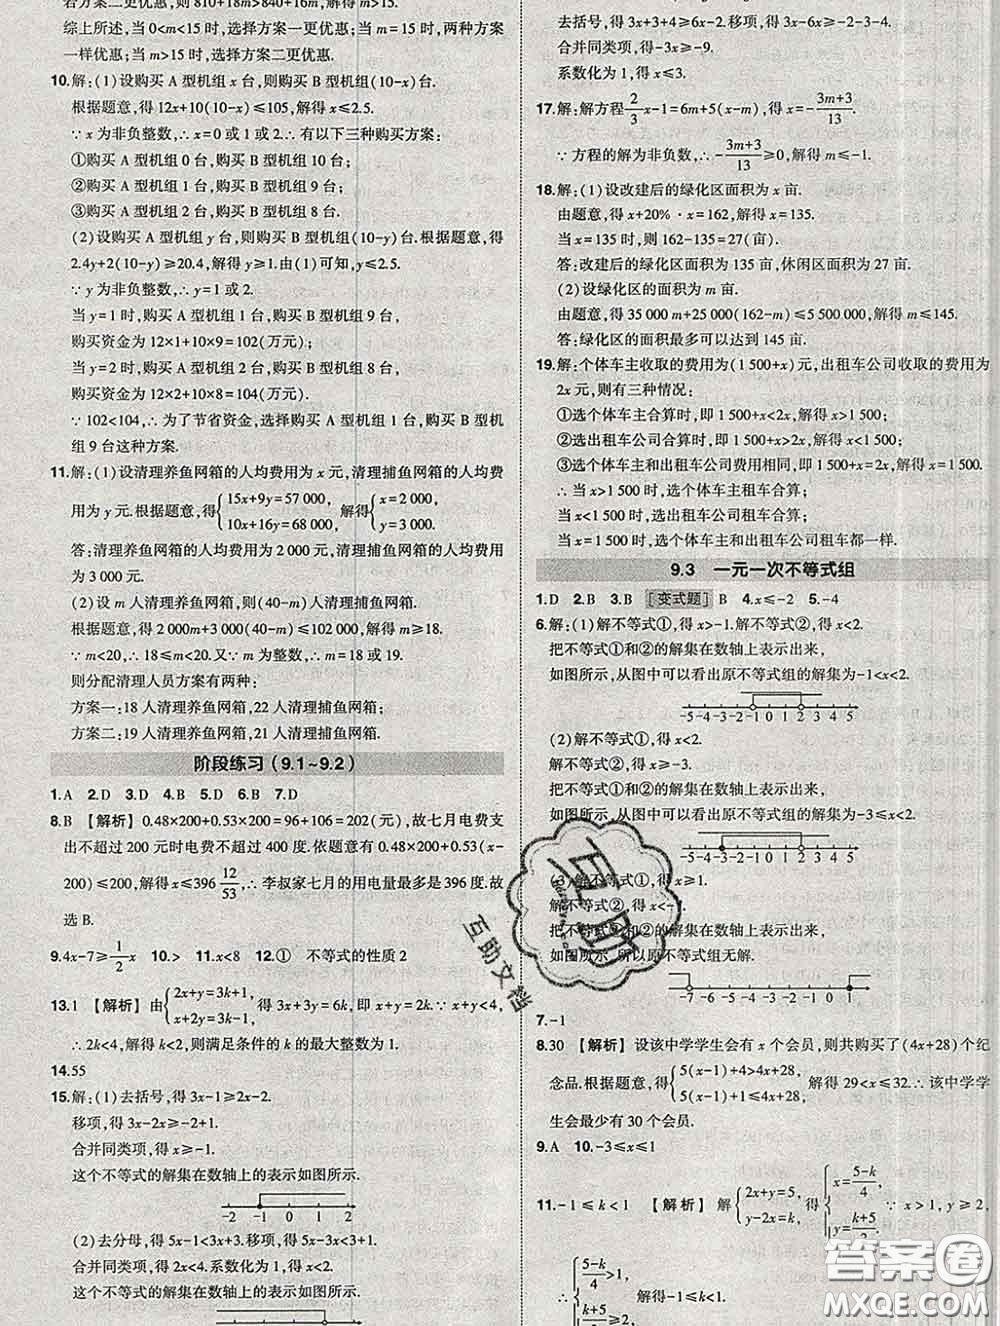 若方案二更优惠,则 810+18m>840+16m,解得 m>15.
综上所述,当 0<m<15 时,选择方案一更优惠;当 m=15 时,两种方案
一样优惠;当 m>15 时,选择方案二更优惠.
10.解:(1)设购买 A 型机组 x 台,则购买 B 型机组(10-x)台.
根据题意,得 12x+10(10-x)≤105,解得 x≤2.5.
∵x 为非负整数,∴x=0 或 1 或 2.∴有以下三种购买方案:
①购买 A 型机组 0 台,购买 B 型机组 10 台;
②购买 A 型机组 1 台,购买 B 型机组 9 台;
③购买 A 型机组 2 台,购买 B 型机组 8 台.
(2)设购买 A 型机组 y 台,则购买 B 型机组(10-y)台.根据题意,得
2.4y+2(10-y)≥20.4,解得 y≥1.由(1)可知,y≤2.5.
∵y 为非负整数,∴y=1 或 2.
当 y=1 时,购买 A 型机组 1 台,购买 B 型机组 9 台,
购买资金为 12×1+10×9=102(万元);
当 y=2 时,购买 A 型机组 2 台,购买 B 型机组 8 台,
购买资金为 12×2+10×8=104(万元).
∵102<104,∴为了节省资金,选择购买 A 型机组 1 台,购买 B 型机
组 9 台这种方案.
11.解:(1)设清理养鱼网箱的人均费用为 x 元,清理捕鱼网箱的人均费
用为 y 元.根据题意,得{15x+9y=57 000, 10x+16y=68 000.解得{x=2 000, y=3 000.
答:清理养鱼网箱的人均费用为 2 000 元,清理捕鱼网箱的人均费用
为 3 000 元.
(2)设 m 人清理养鱼网箱,则(40-m)人清理捕鱼网箱.
根据题意,得 2 000m+3 000(40-m)≤102 000,解得 m≥18.
∵m<20,∴18≤m<20.又∵m 为整数,∴m=18 或 m=19.
则分配清理人员方案有两种:
方案一:18 人清理养鱼网箱,22 人清理捕鱼网箱;
方案二:19 人清理养鱼网箱,21 人清理捕鱼网箱.
阶段练习(9.1~9.2)
1.A 2.D 3.D 4.B 5.D 6.B 7.D
8.B 【解析】0.48×200+0.53×200=96+106=202(元),故七月电费支
出不超过 200 元时电费不超过 400 度.依题意有 0.48×200+0.53(x-
200)≤200,解得 x≤396 12/53,∴李叔家七月的用电量最多是 396 度.故
选 B.
9.4x-7≥1/2x 10.> 11.x<8 12.① 不等式的性质 2
13.1 【解析】由{2x+y=3k+1, x+2y=3k-1,得 3x+3y=6k,即 x+y=2k.∵x+y<4,
∴2k<4,解得 k<2,则满足条件的 k 的最大整数为 1.
14.55
15.解:(1)去括号,得 3x-1≥2x-2.
移项,得 3x-2x≥-2+1.
合并同类项,得 x≥-1.
这个不等式的解集在数轴上的表示如图所示.
-2 -1 0 1 2
(2)去分母,得 5x-1<3x+3.移项,得 5x-3x<3+1.
合并同类项,得 2x<4.系数化为 1,得 x<2.
这个不等式的解集在数轴上的表示如图所示.
去括号,得 3x+3+4≥6x-2.移项,得 3x-6x≥-2-3-4.
合并同类项,得 -3x≥-9.
系数化为 1,得 x≤3.
17.解:解方程2/3x-1=6m+5(x-m),得 x=-(3m+3)/13.
∵方程的解为非负数,∴-(3m+3)/13≥0,解得 m≤-1.
18.解:(1)设改建后的绿化区面积为 x 亩.
由题意,得 x+20%·x=162,解得 x=135.
当 x=135 时,则 162-135=27(亩).
答:改建后的绿化区面积为 135 亩,休闲区面积为 27 亩.
(2)设绿化区的面积为 m 亩.
由题意,得 35 000m+25 000(162-m)≤5 500 000,解得 m≤145.
答:绿化区的面积最多可以达到 145 亩.
19.解:个体车主收取的费用为(1 500+x)元,出租车公司收取的费用为
2x 元,则有三种情况:
①选个体车主合算时,即 1 500+x<2x,解得 x>1 500;
②选出租车公司合算时,即 1 500+x>2x,解得 x<1 500;
③选个体车主和出租车公司费用相同,即 1 500+x=2x,解得 x=1 500.
∴当 x>1 500 时,选个体车主租车合算;
当 x<1 500 时,选出租车公司租车合算;
当 x=1 500 时,选个体车主和出租车公司租车都一样.
9.3 一元一次不等式组
1.D 2.B 3.B [变式题] B 4.x≤-2 5.-4
6.解:(1)解不等式①,得 x>-1.解不等式②,得 x<2.
把不等式①和②的解集在数轴上表示出来,
如图所示,从图中可以看出原不等式组的解集为-1<x<2.
-5 -4 -3 -2 -1 0 1 2 3 4 5
(2)解不等式①,得 x<2.
把不等式①和②的解集在数轴上表示出来,
-5 -4 -3 -2 -1 0 1 2 3 4 5
(3)解不等式①,得 x≥1.
把不等式①和②的解集在数轴上表示出来,
如图所示.所以原不等式组无解.
-7 -6 -5 -4 -3 -2 -1 0 1
7.-1
8.30 【解析】设该中学学生会有 x 个会员,则共购买了(4x+28)个纪
念品.根据题意,得{5(x-1)+4>4x+28, 5(x-1)<4x+28,解得 29<x<33.∴该中学学
生会最少有 30 个会员.
9.A 10.-3≤x≤1
11.-1≤k<1 【解析】解{2x+y=5, y-2x=k,得{x=(5-k)/4, y=(k+5)/2.∵x>1,y≥2,
∴{(5-k)/4>1, (k+5)/2≥2,解得-1≤k<1.
互助
互助文档
答案圈
MXQE.COM